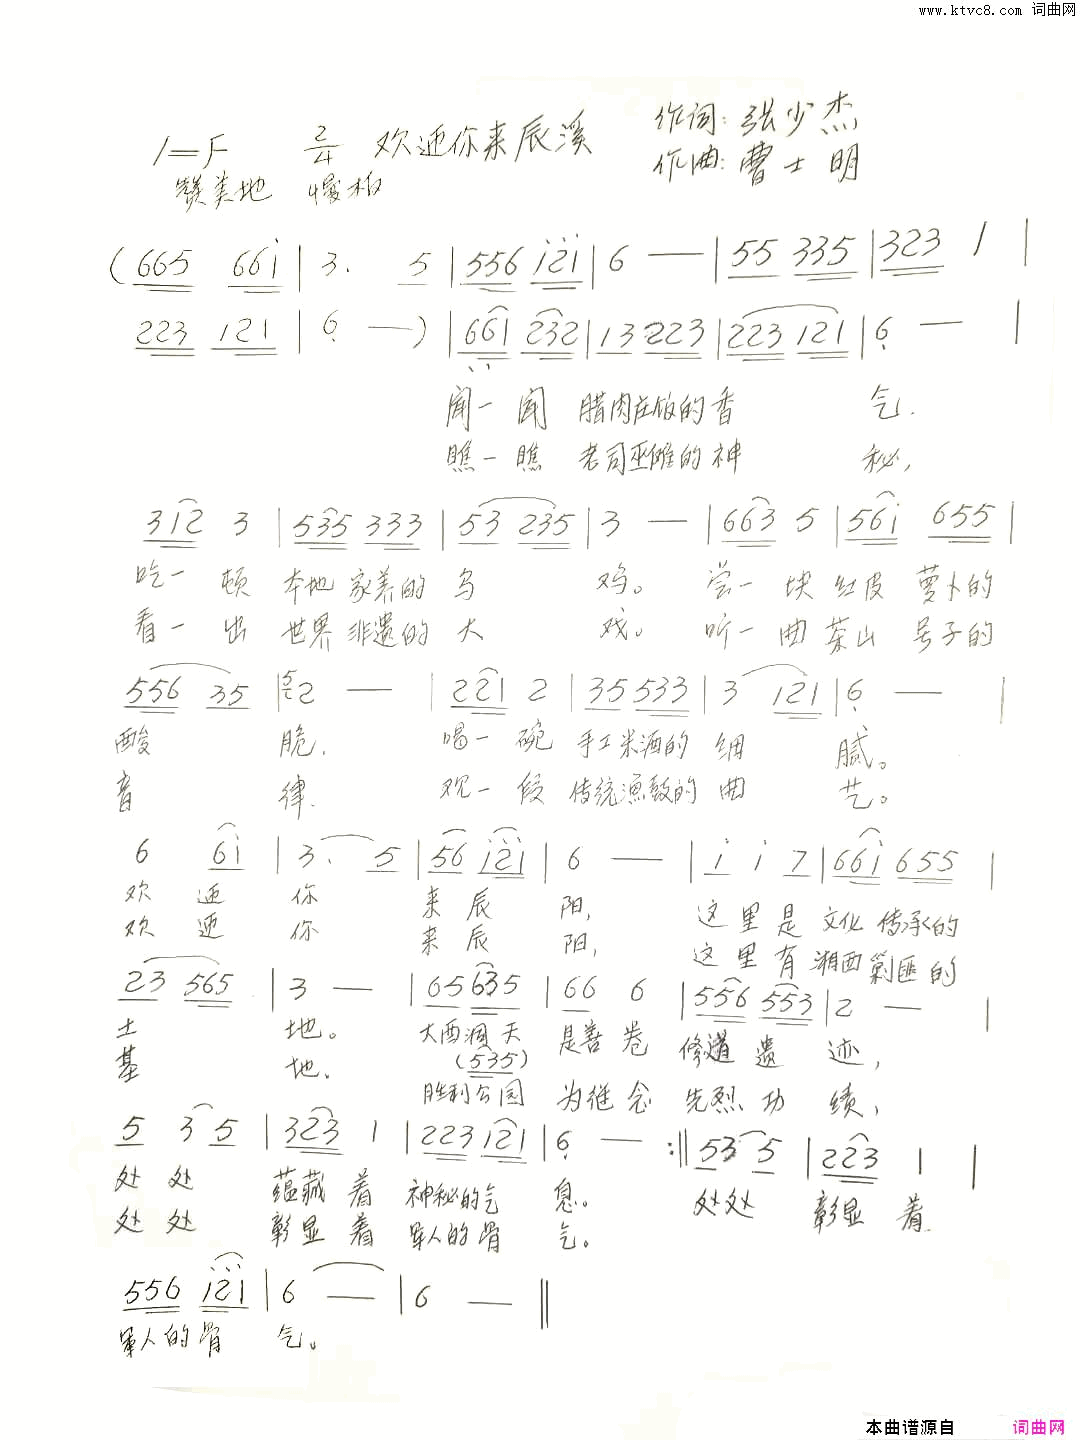 www.ktvc8.com 词曲网
1=F 2/4 欢迎你来辰溪 作词:张少杰
赞美地 慢板 作曲:曹士明
(665 661̇ | 3. 5 | 556 1̇2̇1̇ | 6 — | 55 335 | 323 1 |
223 121 | 6̣ — ) | 6̣6̣1 232 | 13 223 | 223 121 | 6̣ — |
闻一闻 腊肉在饭的香 气.
瞧一瞧 老司巫傩的神 秘,
312 3 | 535 333 | 53 235 | 3 — | 663 5 | 561̇ 655 |
吃一 顿 本地 家养的 乌 鸡。 尝一 块 红皮 萝卜的
看一 出 世界 非遗的 大 戏。 听一 曲 茶山 号子的
556 35 | 52 — | 221 2 | 35 533 | 3 121 | 6̣ — |
酸 脆. 喝一 碗 手工米酒的 细 腻。
音 律. 观一 段 传统渔鼓的 曲 艺。
6 61̇ | 3. 5 | 56 1̇2̇1̇ | 6 — | 1̇ 1̇ 7 | 661̇ 655 |
欢 迎 你 来 辰 阳, 这 里 是 文化 传承的
欢 迎 你 来 辰 阳, 这 里 有 湘西 剿匪 的
23 565 | 3 — | 65 635 | 66 6 | 556 553 | 2 — |
土 地。 大酉洞天 是善 卷 修道 遗 迹,
基 地. (535)
胜利公园 为纪 念 先烈 功 绩,
5 3 5 | 323 1 | 223 121 | 6̣ — :‖ 53 5 | 223 1 |
处 处 蕴藏 着 神秘的气 息。 处处 彰显 着
处 处 彰显 着 军人的骨 气。
556 1̇2̇1̇ | 6 — | 6 — ‖
军人的骨 气。
本曲谱源自 词曲网